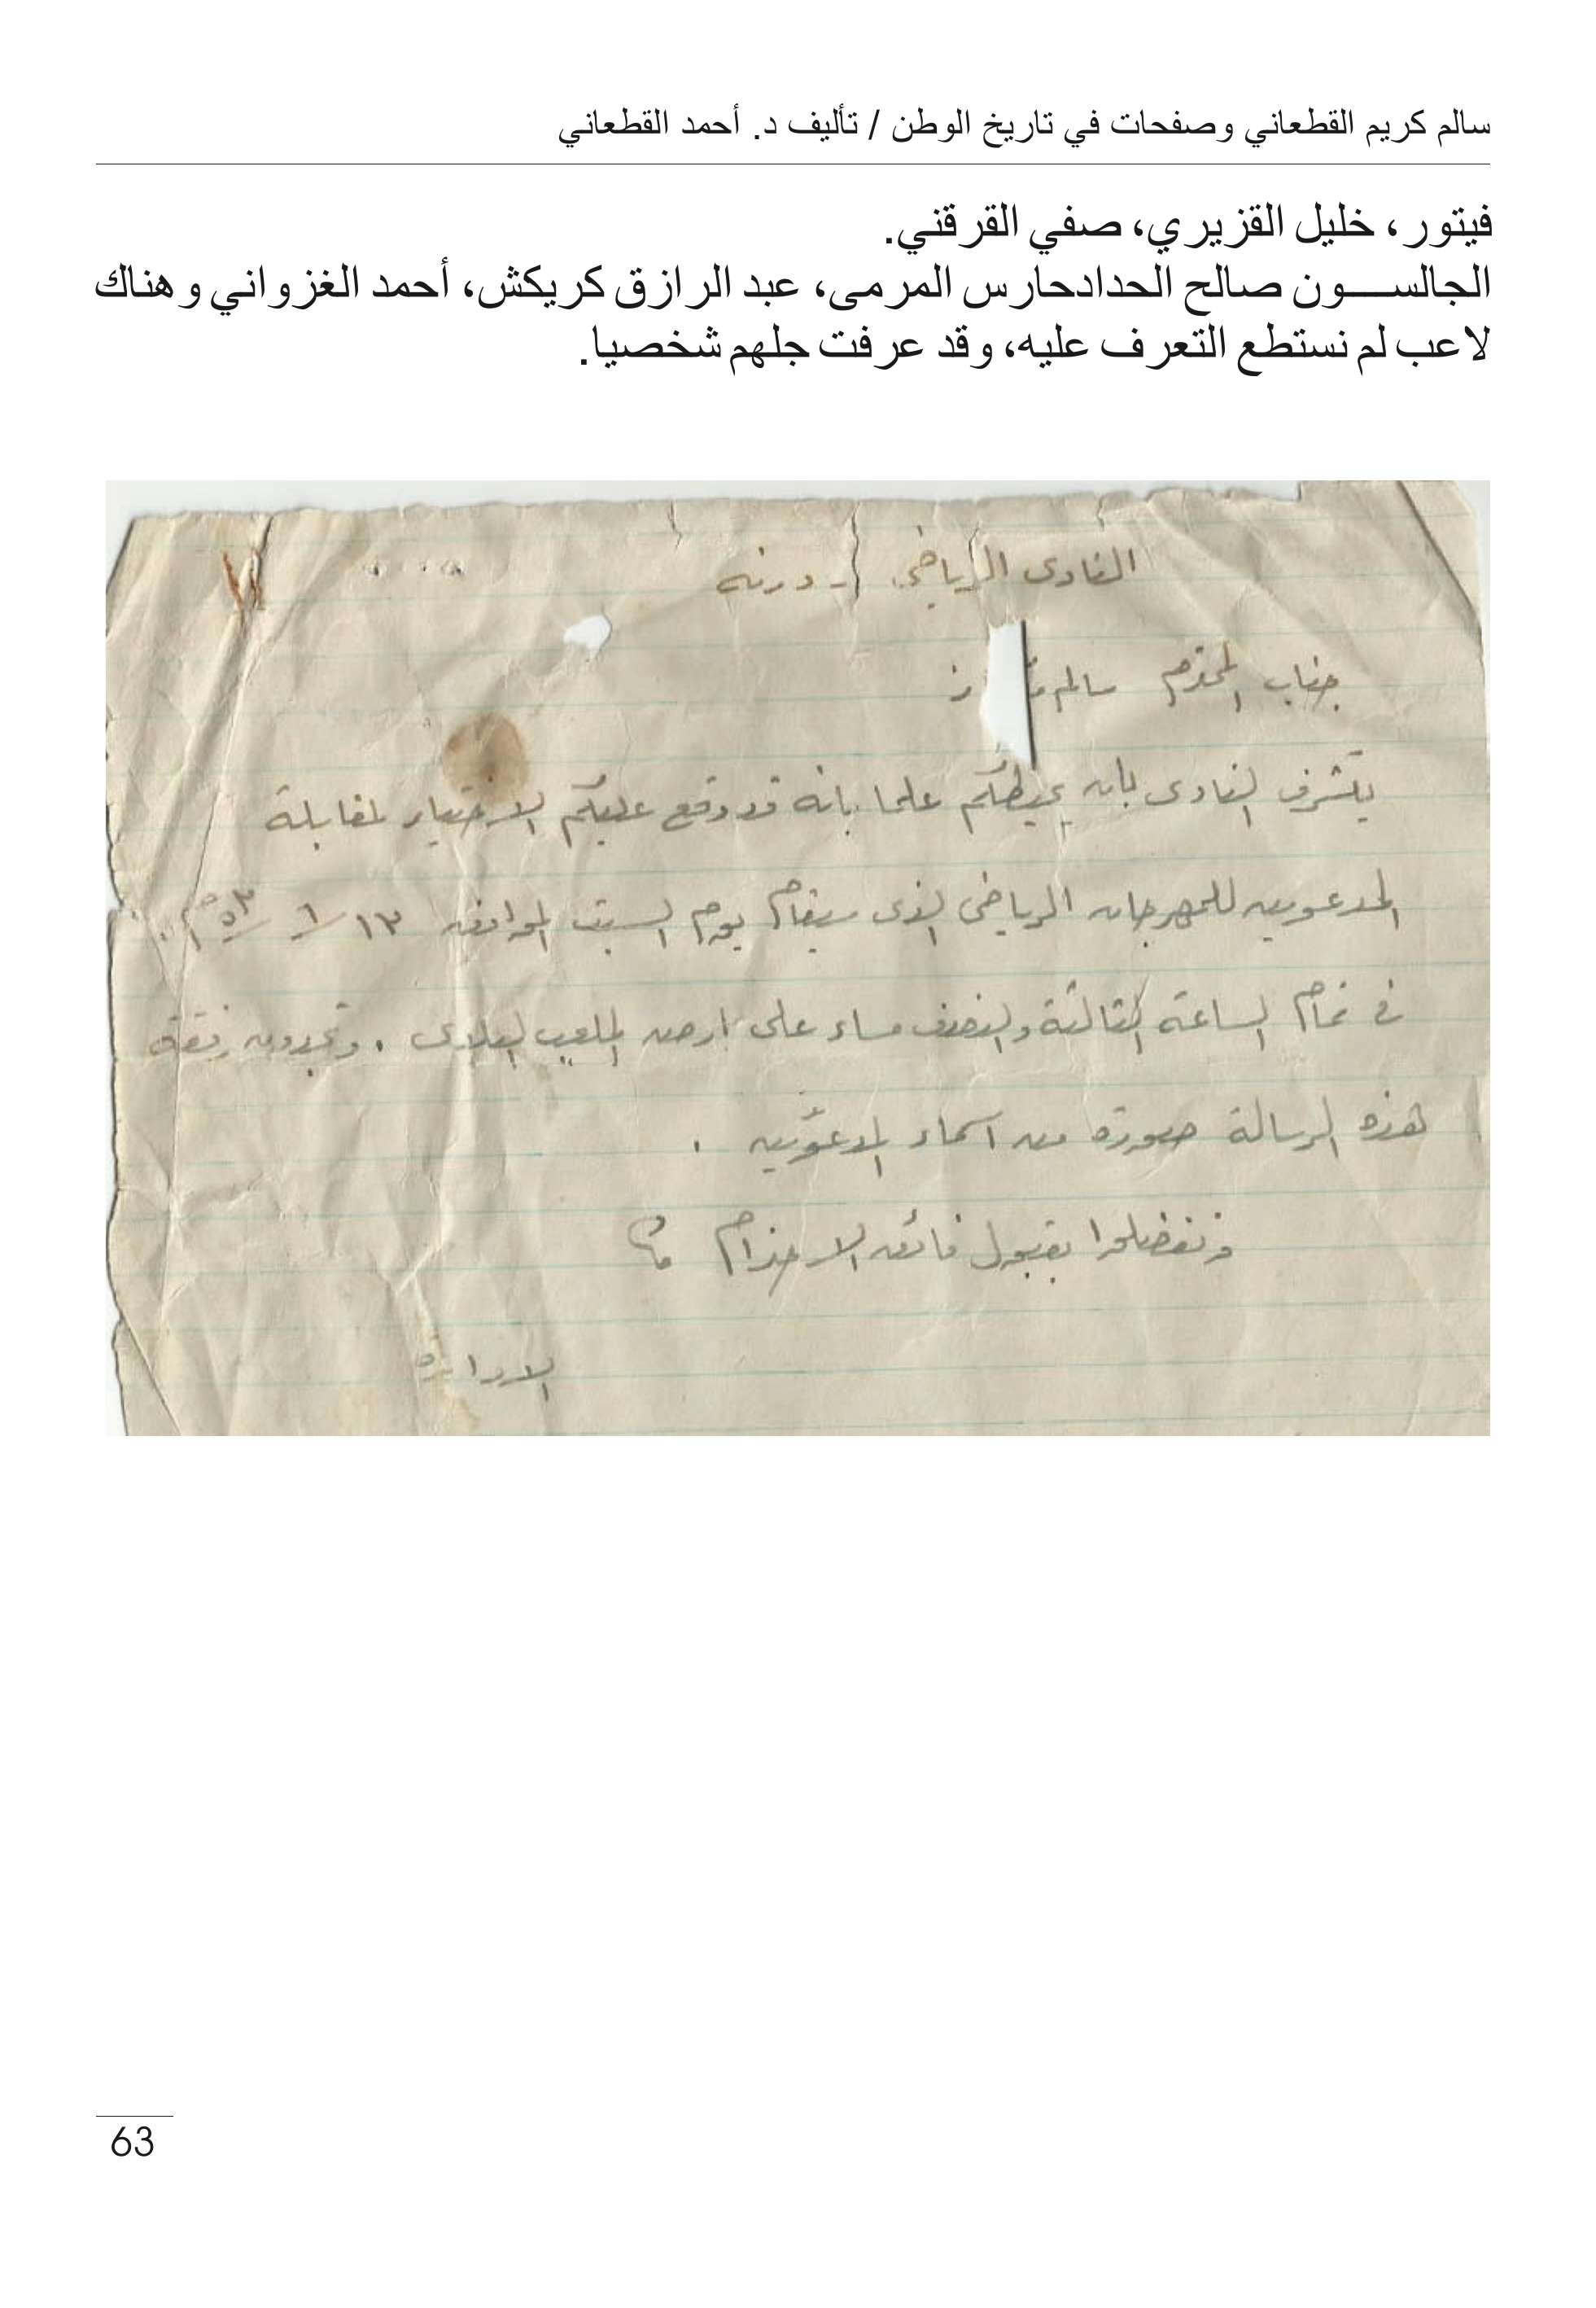 سالم كريم القطعاني وصفحات في تاريخ الوطن / تأليف د. أحمد القطعاني
فيتور، خليل القزيري، صفي القرقني.
الجالســـون صالح الحدادحارس المرمى، عبد الرازق كريكش، أحمد الغزواني وهناك
لاعب لم نستطع التعرف عليه، وقد عرفت جلهم شخصيا.
النادى الرياضي - درنه
جناب المحترم سالم
يتشرف النادى بان يحيطكم علما بانه قد وقع عليكم الاختيار لمقابلة
المدعوين للمهرجان الرياضى الذى سيقام يوم السبت الموافق ١٣/٦/٥٣م.
فى تمام الساعة الثالثة والنصف مساء على ارض الملعب البلدى . وتجدون رفقة
هذه الرسالة صورة من اسماء المدعوين .
وتفضلوا بقبول فائق الاحترام
الاداره
63